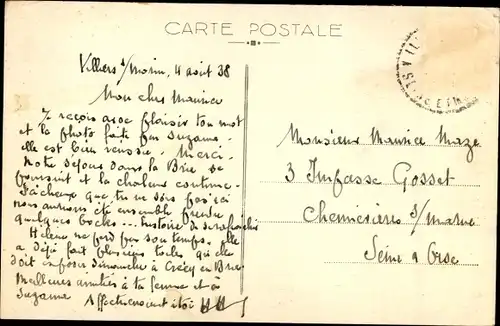 CARTE POSTALE
Villiers s/Morin, 4 août 38
Mon cher Maurice
Je reçois avec plaisir ton mot
et la photo faite par Suzanne
elle est bien réussie. Merci.
Notre séjour dans la Brie se
poursuit et la chaleur continue.
Fâcheux que tu ne sois pas ici
nous aurions été ensemble prendre
quelques bocks... histoire de se rafraîchir
Hélène ne perd pas son temps, elle
a déjà fait plusieurs toiles qu'elle
doit exposer dimanche à Crécy en Brie
Meilleures amitiés à ta femme et à
Suzanne
Affectueusement à toi
Monsieur Maurice Maze
3 Impasse Gosset
Chennevières s/ Marne
Seine & Oise